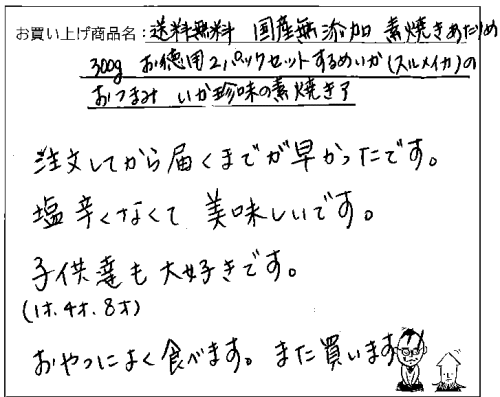 お買い上げ商品名：送料無料 国産無添加 素焼きあたりめ
300g お徳用2パックセットするめいか(スルメイカ)の
おつまみ いか珍味の素焼きア
注文してから届くまでが早かったです。
塩辛くなくて 美味しいです。
子供達も大好きです。
(1才.4才.8才)
おやつによく食べます。また買います